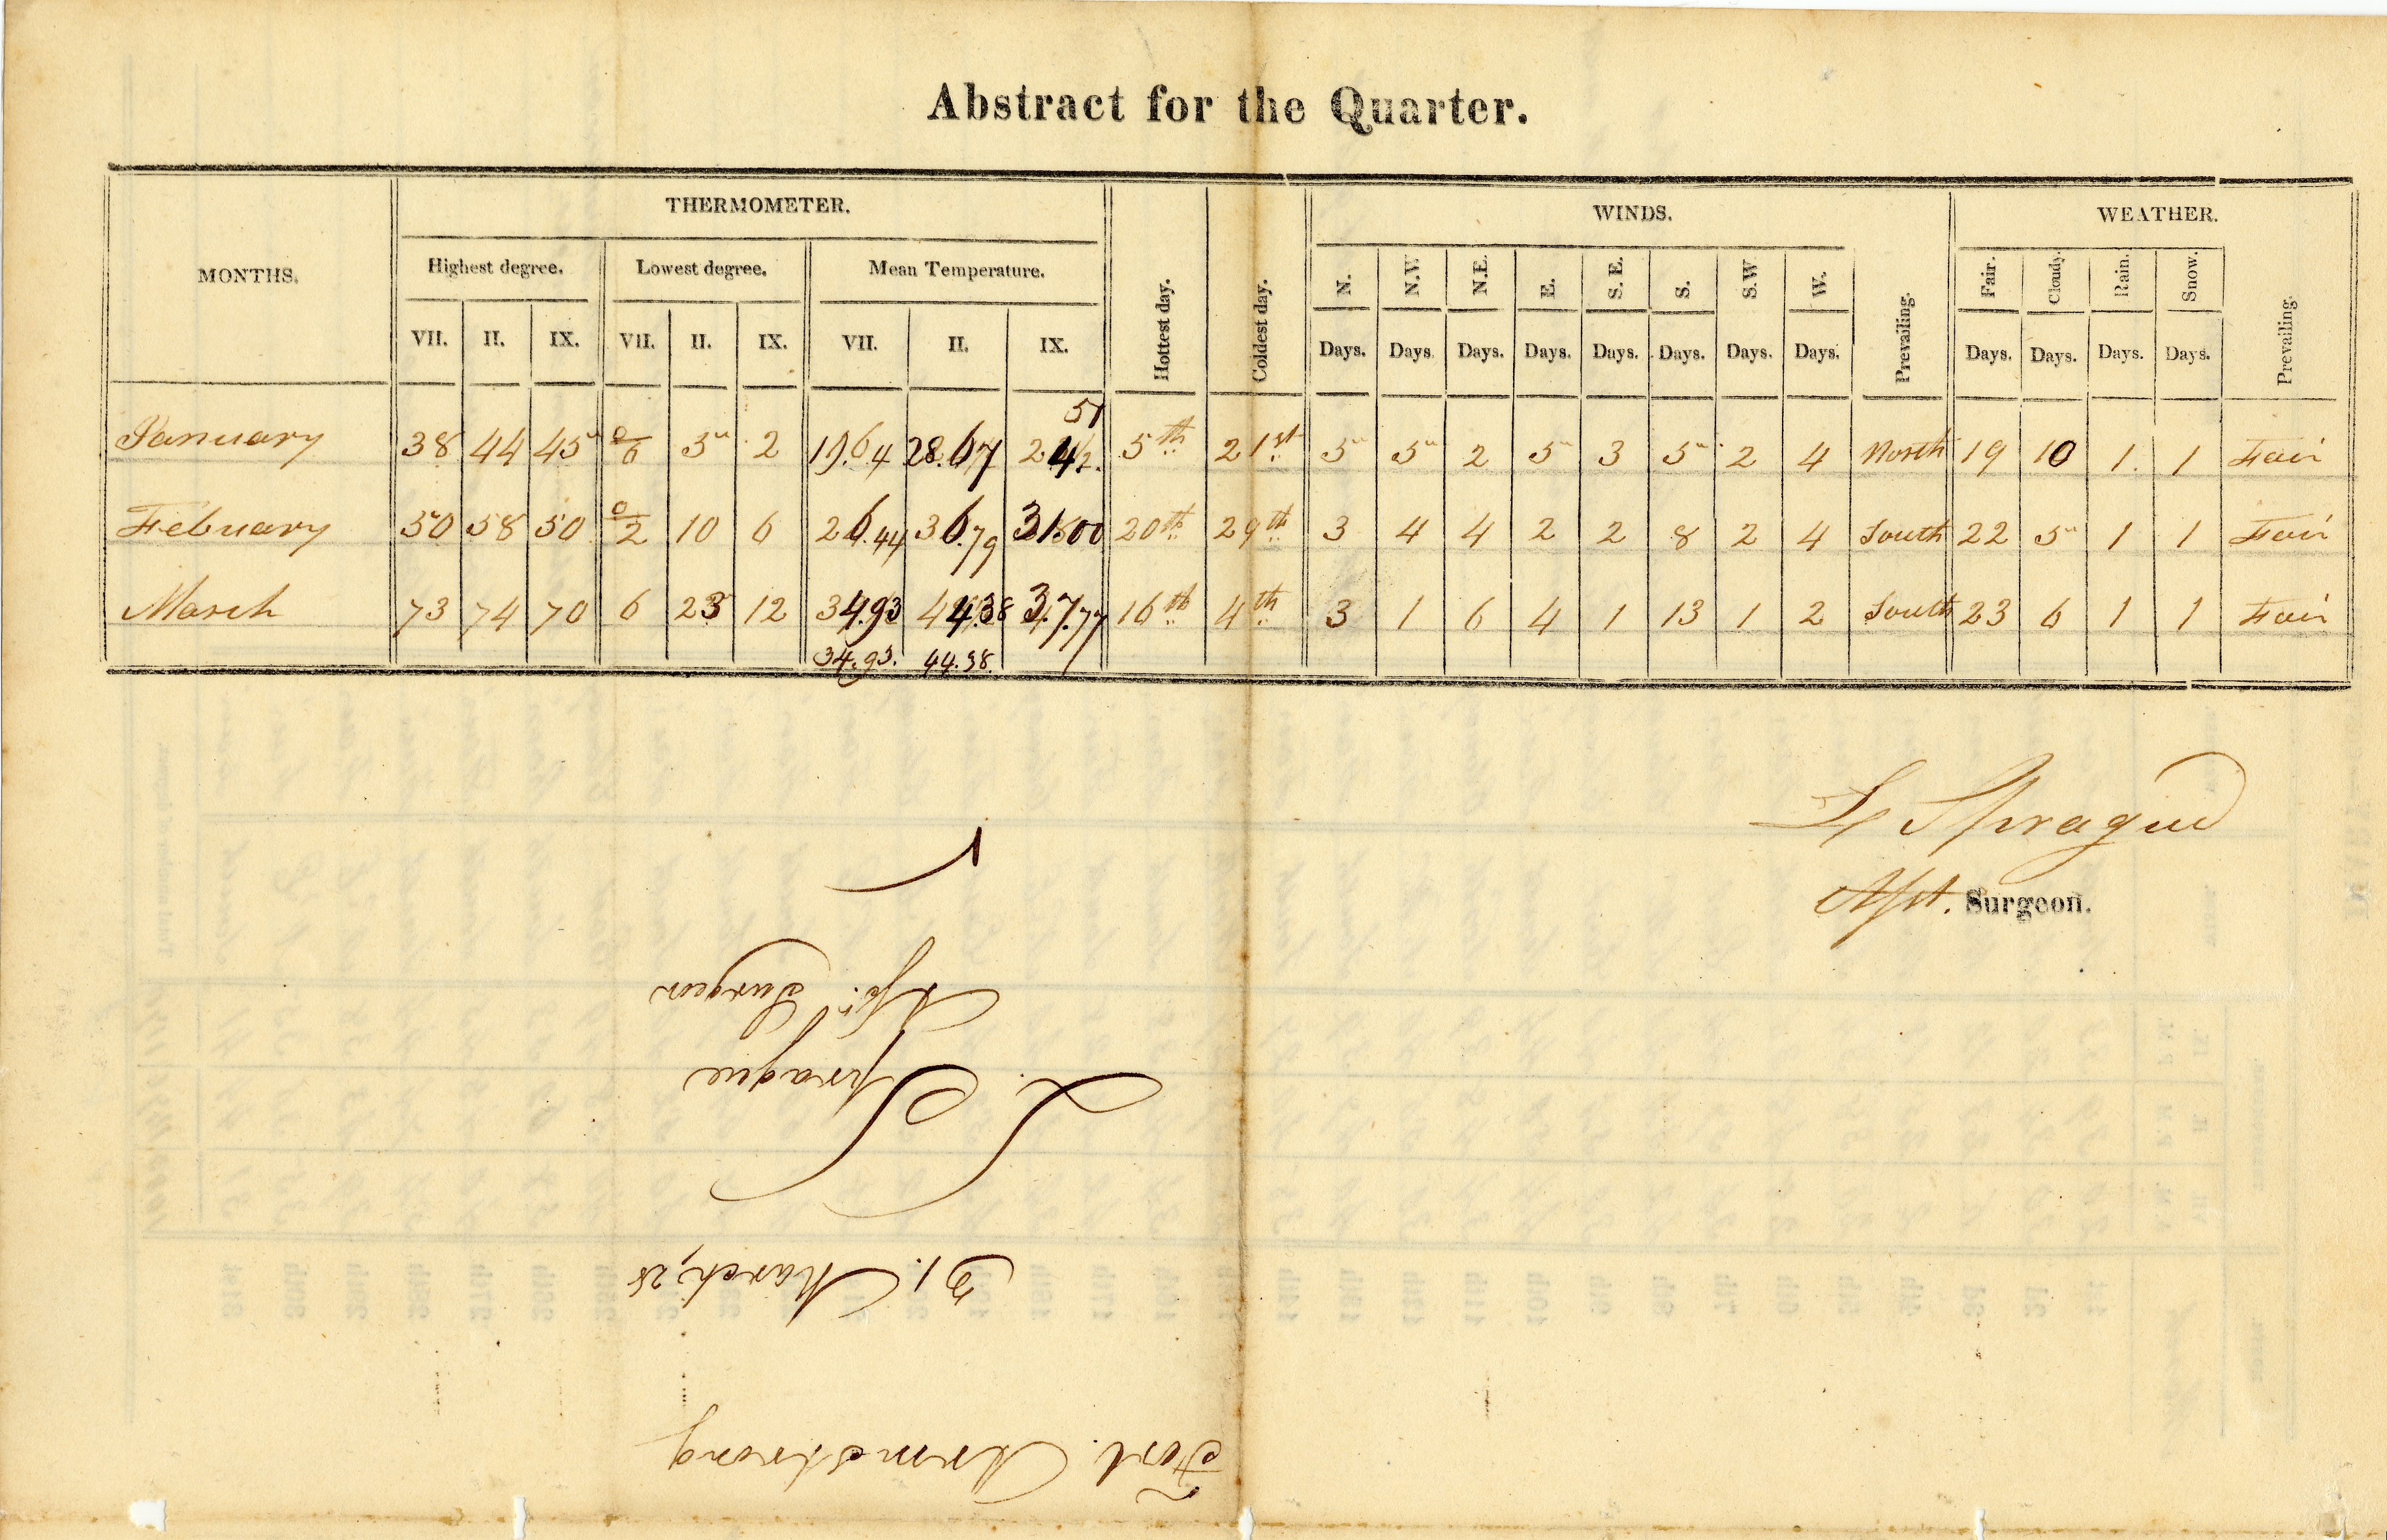 Abstract for the Quarter.
MONTHS. THERMOMETER. Hottest day. Coldest day. WINDS. WEATHER.
Highest degree. Lowest degree. Mean Temperature. N. N.W. N.E. E. S. E. S. S.W W. Prevailing. Fair. Cloudy. Rain. Snow. Prevailing.
VII. II. IX. VII. II. IX. VII. II. IX. Days. Days. Days. Days. Days. Days. Days. Days. Days. Days. Days. Days.
January 38 44 45 0/6 5 2 19.64 28.67 24 5th 21st 5 5 2 5 3 5 2 4 North 19 10 1 1 Fair
February 50 58 50 0/2 10 6 26.44 36.79 31.00 20th 29th 3 4 4 2 2 8 2 4 South 22 5 1 1 Fair
March 73 74 70 6 23 12 34.93 44.38 37.77 16th 4th 3 1 6 4 1 13 1 2 South 23 6 1 1 Fair
34.93. 44.38.
L Sprague
Asst. Surgeon.
Fort Armstrong
31. March, 28
L. Sprague
Asst. Surgeon